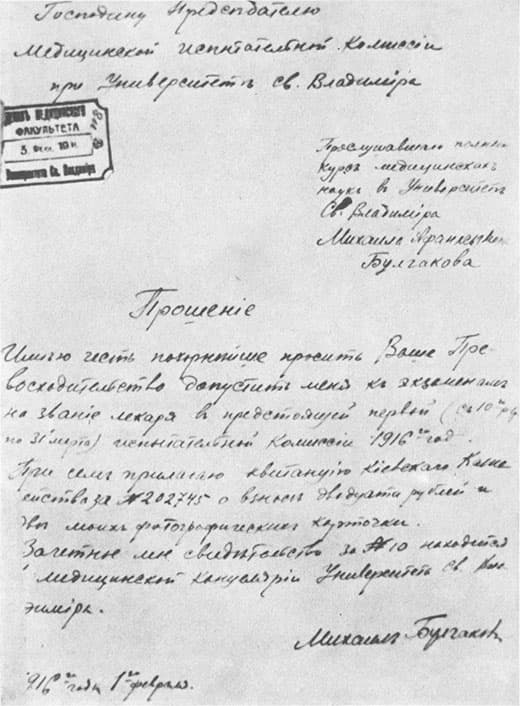 Господину Председателю
Медицинской испытательной Комиссіи
при Университетѣ св. Владиміра
Деканъ Медицинского
ФАКУЛЬТЕТА
Университета Св. Владиміра
Прослушавшаго полный
курсъ медицинскихъ
наукъ в Университетѣ
Св. Владиміра
Михаила Афанасьевича
Булгакова
Прошеніе
Имѣю честь покорнѣйше просить Ваше Пре-
восходительство допустить меня къ экзаменамъ
на званіе лекаря в предстоящей первой (съ 10
по 31 марта) испытательной Комиссіи 1916 год.
При семъ прилагаю квитанцію Кіевскаго Казна
ейства за № 202745 о взносѣ двадцати рублей и
двѣ моихъ фотографическихъ карточки.
Зачетное мое свидѣтельство за № 10 находится
Медицинской Канцеляріи Университетѣ Св. Вла
диміра.
Михаилъ Булгаковъ
916 года 1 февраля.